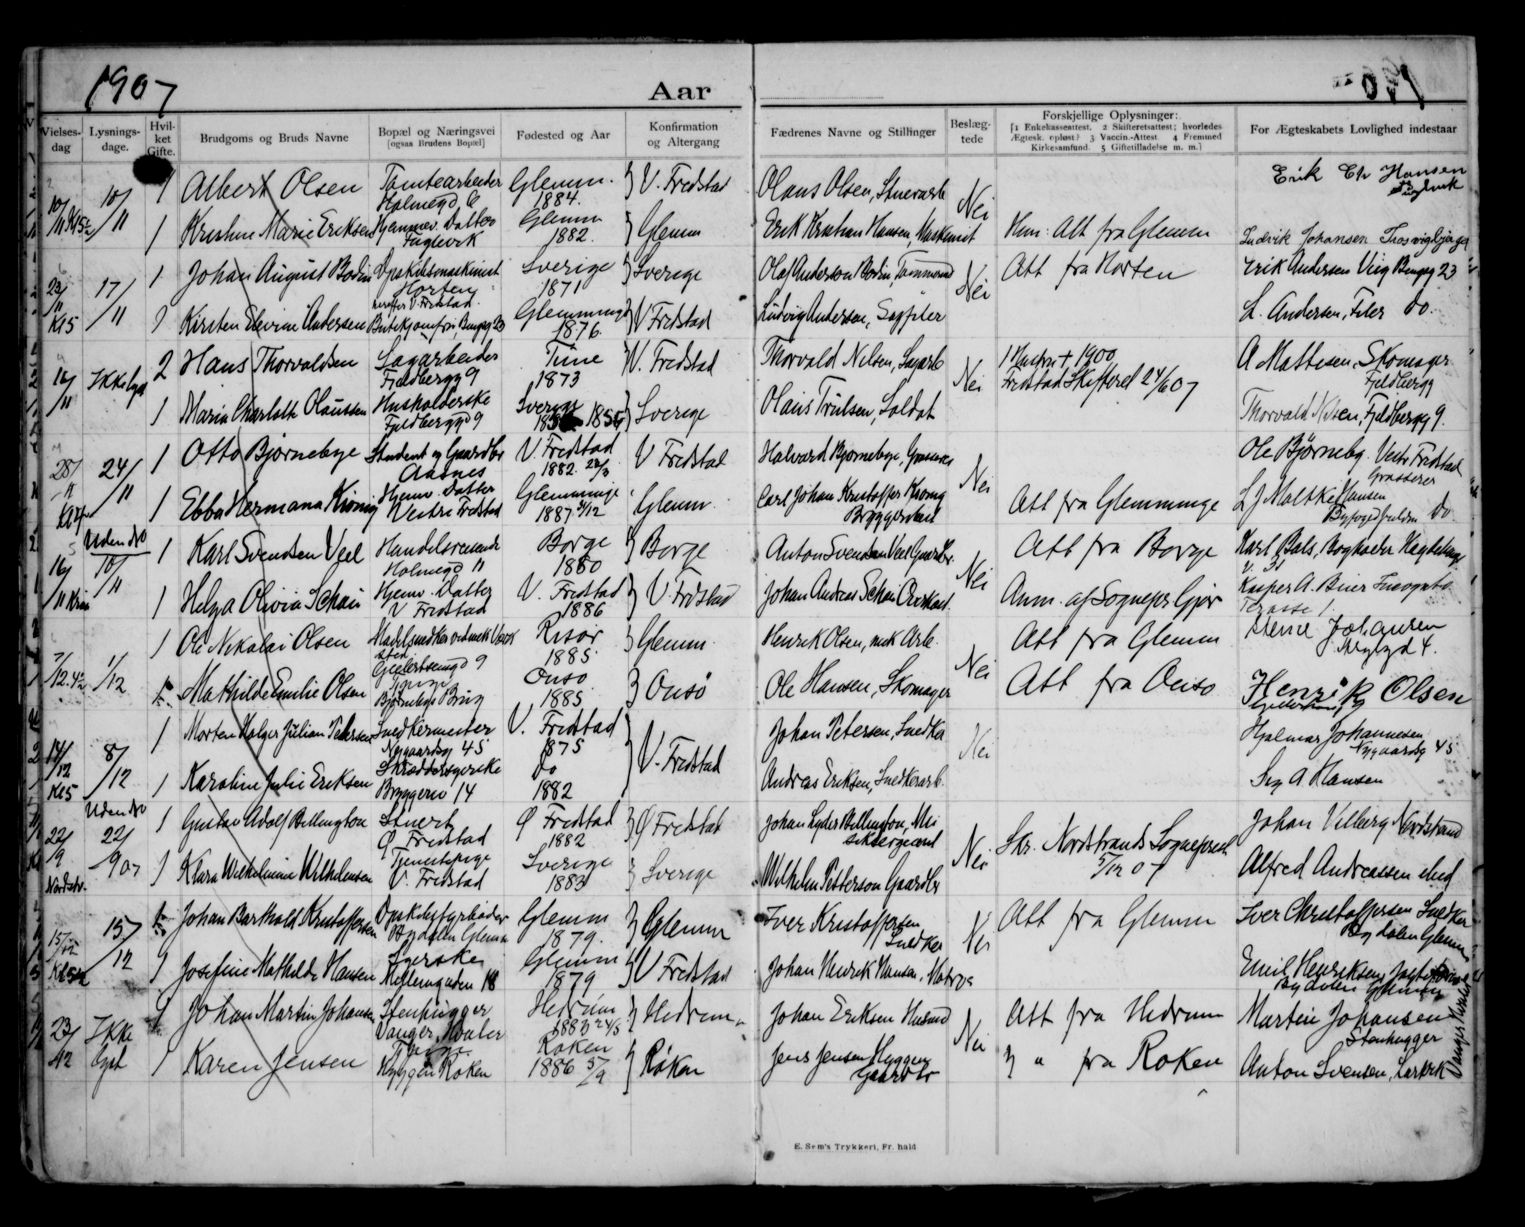 1907
Aar
1907
Vielses-dag
Lysnings-dage.
Hvil-ket Gifte.
Brudgoms og Bruds Navne
Bopæl og Næringsvei [ogsaa Brudens Bopæl]
Fødested og Aar
Konfirmation og Altergang
Fædrenes Navne og Stillinger
Beslæg-tede
Forskjellige Oplysninger:
[1 Enkekasseattest. 2 Skifteretsattest; hvorledes
Ægtesk. opløst? 3 Vaccin.-Attest. 4 Fremmed
Kirkesamfund. 5 Giftetilladelse m. m.]
For Ægteskabets Lovlighed indestaar
10/11 10/11 1 Albert Olsen Tomtearbeider Holmegd. 6 Glemm. 1884. V. Fredstad Olaus Olsen, Stuerarb Nei Erik Chr Hansen
1 Kristine Marie Eriksen Hjemmev. Datter Fuglevik Glemm 1882. Glemm Erik Kristian Hansen, Maskinist Hun: Att fra Glemm Ludvik Johansen
23/11 Kl 5 17/11 1 Johan August Bodin Dpskibsmaskinist Horten Sverige 1871 Sverige Olaf Anderson Bodin, Tømmermd Nei Att fra Horten Erik Andersen Bengg 23
1 Kirsten Elevine Andersen Bengg 23 Glemminge 1876. V Fredstad Ludvig Andersen, Sagfiler L. Andersen, Filer do.
16/11 Ikke lyst 2 Hans Thorvaldsen Sagarbeider Fjeldbergg 9 Tune 1873 V. Fredstad Thorvald Nilsen, Sagarb Nei 1 Hustru + 1900 Fredstad Skifteret 24/6 07 A Mattesen, Skomager Fjeldbergg
1 Maria Charlotte Olaussen Husholderske Fjeldbergg 9 Sverige 1855 Sverige Olaus Trulsen, Soldat Thorvald Nilsen, Fjeldbergg 9.
28/11 24/11 1 Otto Bjørnebye Student og Gaardbr Aasnes V. Fredstad 1882 V Fredstad Halvard Bjørnebye, Grosserer Nei Ole Bjørneby. Vestre Fredstad Grosserer
1 Ebba Hermana Kiønig Hjemv. Datter Vestre Fredstad Glemminge 1887 4/12 Glemm. Carl Johan Kristoffer Kiønig Bryggerieier Att fra Glemminge L J Moltke Hansen Byfogedfuldm do
Uden b 16/11 10/11 1 Karl Svendsen Veel Handelsreisende Holmegd 11 Borge 1880 Borge Anton Svendsen Veel Gaardbr. Nei Att fra Borge Karl Bals, Bogholder
1 Helga Olivia Schau Hjemv. Datter V Fredstad V. Fredstad 1886 V. Fredstad Johan Andreas Schau Anm. af Sognepr Gjør Kasper A. Terasse 1.
7/12 1/12 1 Ole Nikolai Olsen Risør 1885. Glemm. Henrik Olsen, mek Arb. Nei Att fra Glemm Johansen
Mathilde Emilie Olsen Pige Bjørnebys Brug Onsø 1885 Onsø Ole Hansen, Skomager Att fra Onsø Henrik Olsen
14/12 Kl 5 8/12 1 Morten Holger Julian Petersen Snedkermester Nygaardsg 45 V. Fredstad 1875 V. Fredstad Johan Petersen, Snedker Nei Hjalmar Johannesen Nygaardsg 45
1 Karoline Julie Eriksen Skræddersyerske Bryggeriv 14 do 1882 Andreas Eriksen, Snedkerarb. Sig A Hansen
Uden b 22/9 Nordstr. 22/9 07 1 Gustav Adolf Billington Stuert Ø Fredstad Ø Fredstad 1882 Ø Fredstad Johan Lyder Billington, Nei Skr. Nordstrands Sogneprest 5/12 07 Johan Vilberg Nordstrand
1 Klara Wilhelmine Wilhelmsen Tjenestepige V. Fredstad Sverige 1883 Sverige Wilhelm Petterson Gaardbr Alfred Andreassen sted
15/12 15/12 Johan Barthold Kristoffersen Dpskibsfyrbøder Bydalen Glemm Glemm 1879. Glemm Iver Kristoffersen Snedker Nei Att fra Glemm Iver Christoffersen Snedker Bydalen Glemm
1 Josefine Mathilde Hansen Syerske Møllergaden 18 Glemm 1879 V Fredstad Johan Henrik Hansen, Matros Emil Henriksen Bydalen Glemm
23/12 Ikke lyst 1 Johan Martin Johansen Stenhugger Vauger, Hvaler Hedrum 1883 24/5 Hedrum Johan Eriksen Husmd Nei Att fra Hedrum Martin Johansen Stenhugger
1 Karen Jensen Pige Hyggen Røken Røken 1886 5/9 Røken Jens Jensen Hyggen Gaardbr " " fra Røken Anton Svensen, Larkvik
E. Sem's Trykkeri, Fr. hald